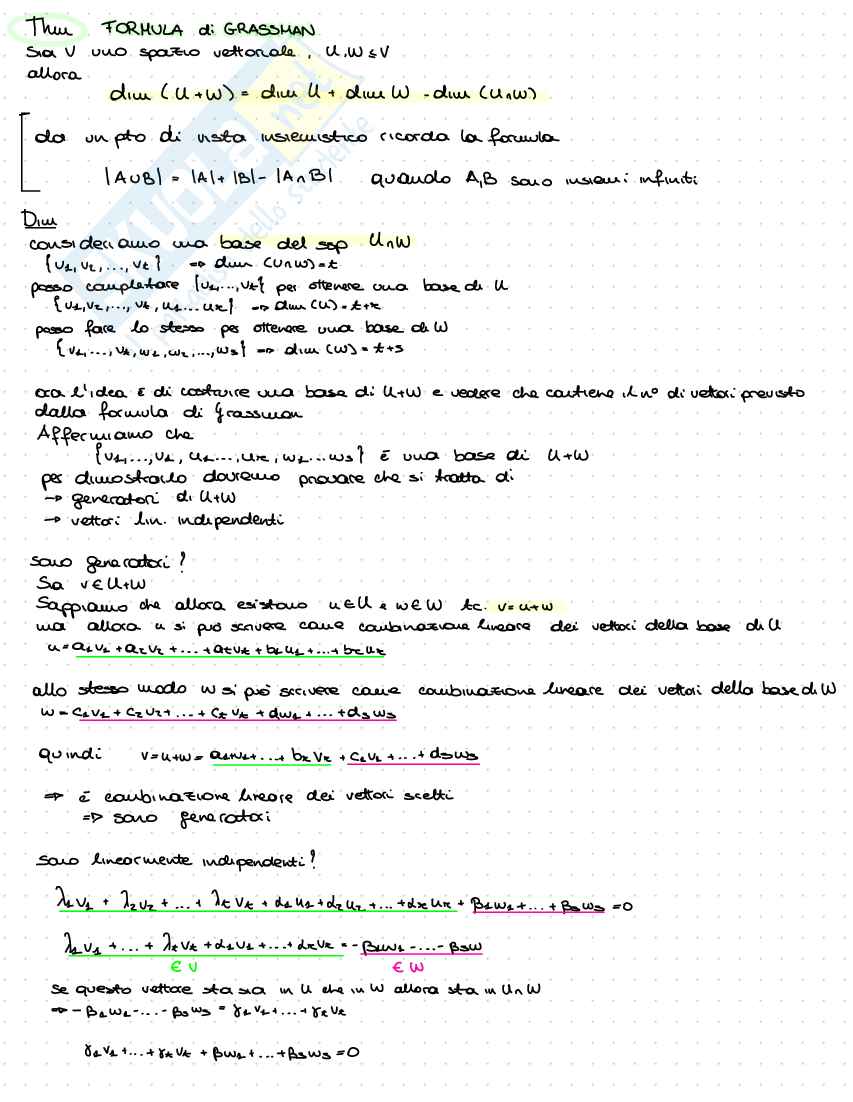 Thm FORMULA di GRASSMAN
Sia V uno spazio vettoriale, U,W ≤ V
allora
dim (U+W) = dim U + dim W - dim (U∩W)
da un pto di vista insiemistico ricorda la formula
|A∪B| = |A| + |B| - |A∩B| quando A,B sono insiemi infiniti
Dim
consideriamo una base del ssp U∩W
{v₁, v₂, ..., vₜ} ⇒ dim (U∩W) = t
posso completare {v₁, ..., vₜ} per ottenere una base di U
{v₁, v₂, ..., vₜ, u₁ ... uᵣ} ⇒ dim (U) = t+r
posso fare lo stesso per ottenere una base di W
{v₁, ..., vₜ, w₁, w₂, ..., wₛ} ⇒ dim (W) = t+s
ora l'idea è di costruire una base di U+W e vedere che contiene il n° di vettori previsto
dalla formula di Grassman
Affermiamo che
{v₁, ..., v₁, u₁ ..., uᵣ, w₁ ... wₛ} è una base di U+W
per dimostrarlo dovremo provare che si tratta di
→ generatori di U+W
→ vettori lin. indipendenti
sono generatori?
Sia v ∈ U+W
Sappiamo che allora esistono u ∈ U e w ∈ W tc. v = u+w
ma allora u si può scrivere come combinazione lineare dei vettori della base di U
u = a₁v₁ + a₂v₂ + ... + aₜvₜ + b₁u₁ + ... + bᵣuᵣ
allo stesso modo w si può scrivere come combinazione lineare dei vettori della base di W
w = c₁v₁ + c₂v₂ + ... + cₜvₜ + dw₁ + ... + dₛwₛ
quindi v = u+w = a₁v₁ + ... + bᵣvᵣ + c₁v₁ + ... + dₛwₛ
⇒ è combinazione lineare dei vettori scelti
⇒ sono generatori
sono linearmente indipendenti?
λ₁v₁ + λ₂v₂ + ... + λₜvₜ + α₁u₁ + α₂u₂ + ... + αᵣuᵣ + β₁w₁ + ... + βₛwₛ = 0
λ₁v₁ + ... + λₜvₜ + α₁u₁ + ... + αᵣvᵣ = - β₁w₁ - ... - βₛw
∈ V ∈ W
se questo vettore sta sia in U che in W allora sta in U∩W
⇒ - β₁w₁ - ... - βₛwₛ = γ₁v₁ + ... + γₜvₜ
γ₁v₁ + ... + γₜvₜ + βw₁ + ... + βₛwₛ = 0